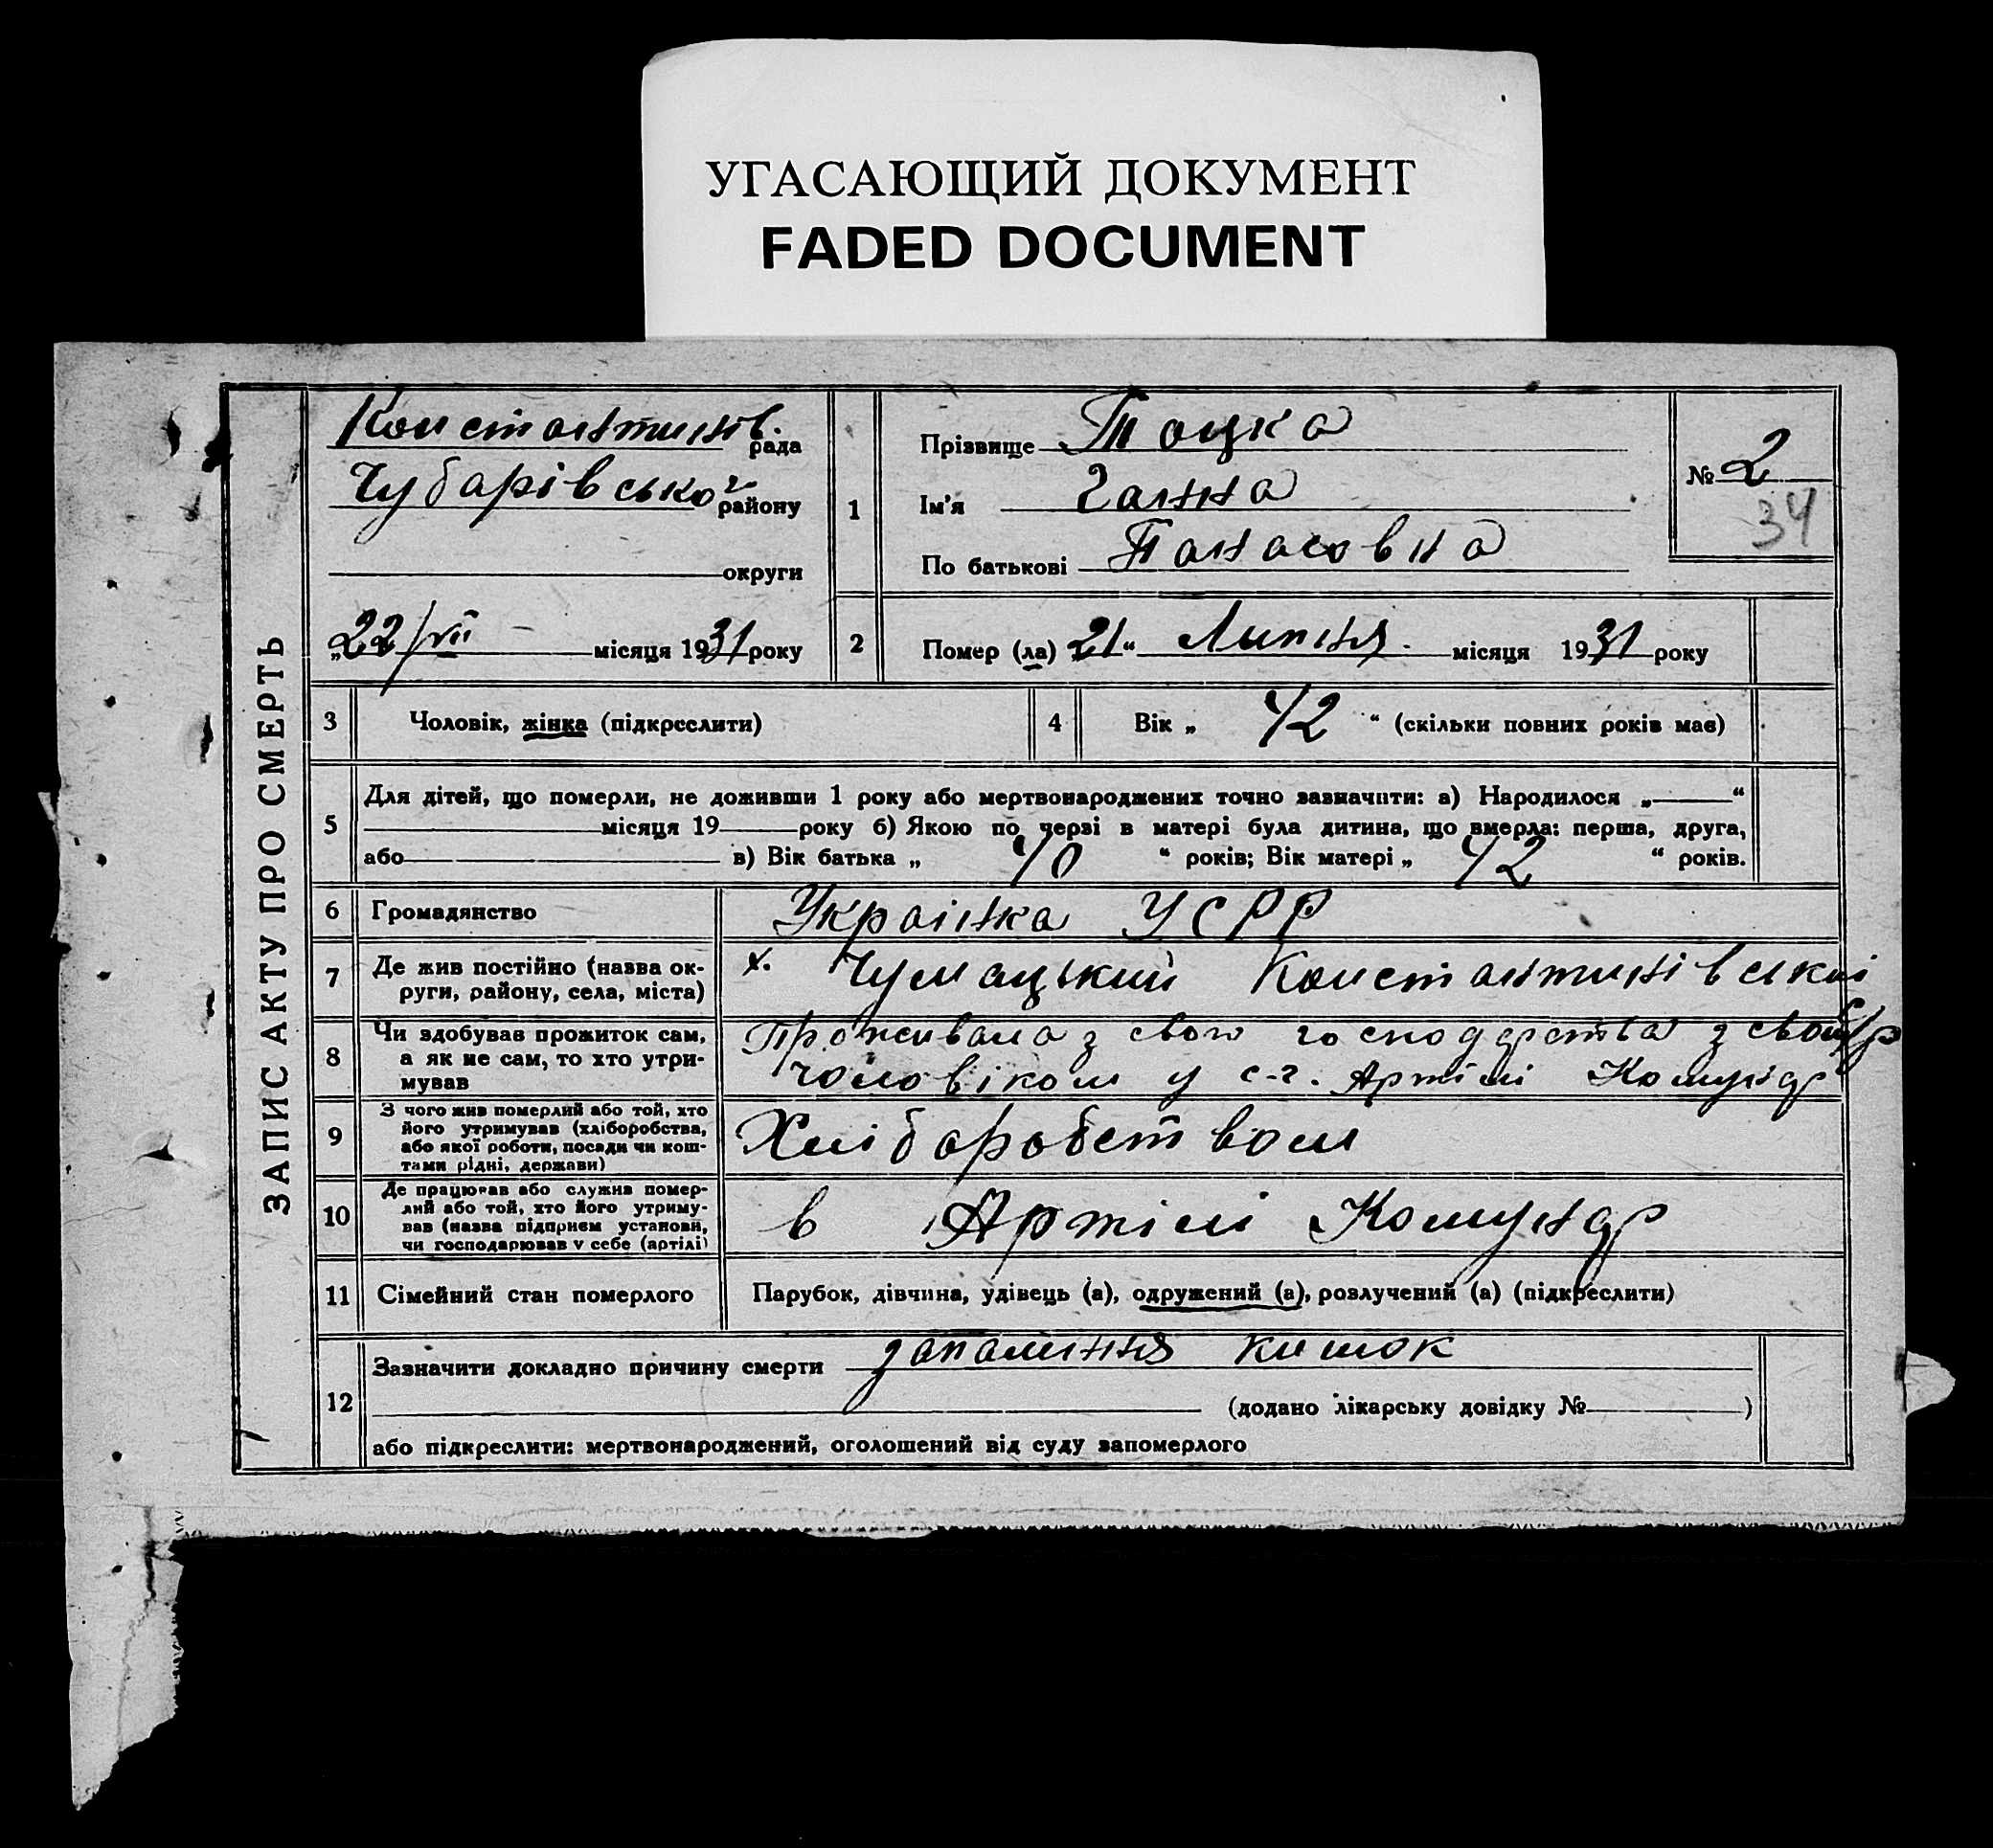 УГАСАЮЩИЙ ДОКУМЕНТ
FADED DOCUMENT
ЗАПИС АКТУ ПРО СМЕРТЬ
Константинів. рада
Чубарівської району
округи
„22/VII місяця 1931 року
1
Прізвище Тоцка
Ім'я Ганна
По батькові Панасовна
№ 2
34
2 Помер (ла) 21“ Липня. місяця 1931 року
3 Чоловік, жінка (підкреслити)
4 Вік „ 42 “ (скільки повних років має)
5 Для дітей, що померли, не доживши 1 року або мертвонароджених точно зазначити: а) Народилося „ “
місяця 19 року б) Якою по черзі в матері була дитина, що вмерла: перша, друга,
або в) Вік батька „ 40 “ років; Вік матері „ 42 “ років.
6 Громадянство Українка УСРР
7 Де жив постійно (назва ок-
руги, району, села, міста)
х. Чумацький Константинівської
с/р
8 Чи здобував прожиток сам,
а як не сам, то хто утри-
мував
Проживала з свого господарства з своїм
чоловіком у с-г. Артілі Комунар
9 З чого жив померлий або той, хто
його утримував (хліборобства,
або якої роботи, посади чи кош-
тами рідні, держави)
Хліборобством
10 Де працював або служив помер-
лий або той, хто його утриму-
вав (назва підприєм установи,
чи господарював у себе (артілі)
в Артілі Комунар
11 Сімейний стан померлого Парубок, дівчина, удівець (а), одружений (а), розлучений (а) (підкреслити)
12 Зазначити докладно причину смерти запалення кишок
(додано лікарську довідку № )
або підкреслити: мертвонароджений, оголошений від суду запомерлого